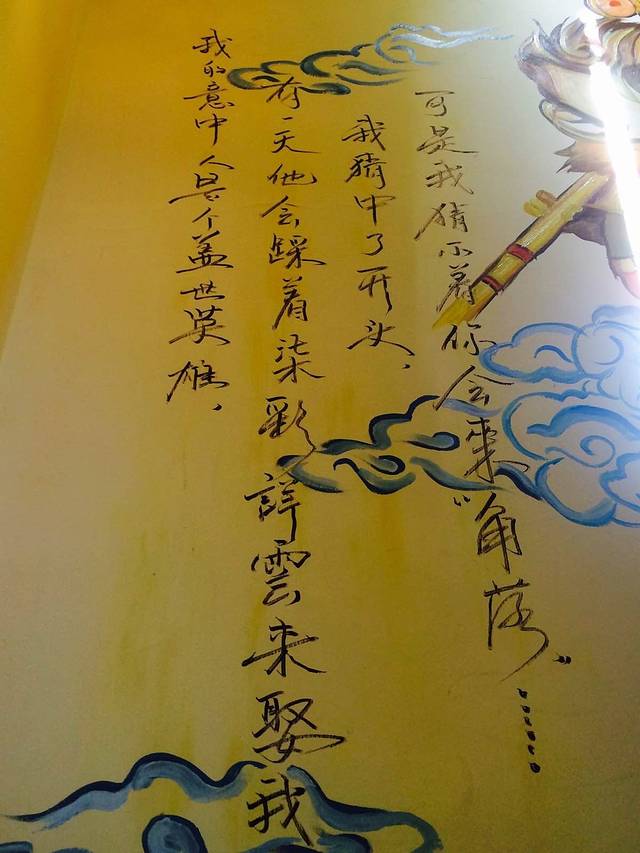 我的意中人是个盖世英雄，
有一天他会踩着柒彩詳雲来娶我
我猜中了开头，
可是我猜不着你会来“角落”……